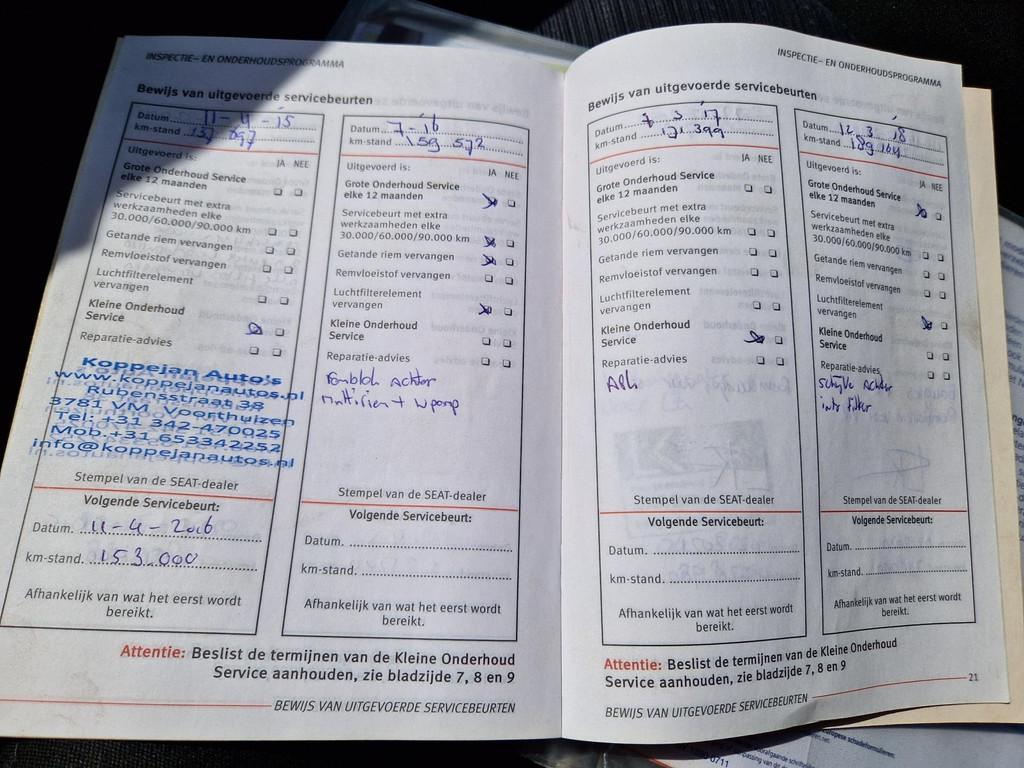 INSPECTIE- EN ONDERHOUDSPROGRAMMA
Bewijs van uitgevoerde servicebeurten
Datum 11-4-15
km-stand 137 897
Uitgevoerd is: JA NEE
Grote Onderhoud Service
elke 12 maanden
Servicebeurt met extra
werkzaamheden elke
30.000/60.000/90.000 km
Getande riem vervangen
Remvloeistof vervangen
Luchtfilterelement
vervangen
Kleine Onderhoud
Service
Reparatie-advies
Koppejan Auto's
www.koppejanautos.nl
Rubensstraat 38
3781 VM Voorthuizen
Tel: +31 342-470025
Mob.+31 653342252
info@koppejanautos.nl
Stempel van de SEAT-dealer
Volgende Servicebeurt:
Datum. 11-4-2016
km-stand. 153.000
Afhankelijk van wat het eerst wordt
bereikt.
Datum 7-16
km-stand 159 572
Uitgevoerd is: JA NEE
Grote Onderhoud Service
elke 12 maanden
Servicebeurt met extra
werkzaamheden elke
30.000/60.000/90.000 km
Getande riem vervangen
Remvloeistof vervangen
Luchtfilterelement
vervangen
Kleine Onderhoud
Service
Reparatie-advies
Remblok achter
multirien + wpomp
Stempel van de SEAT-dealer
Volgende Servicebeurt:
Datum.
km-stand.
Afhankelijk van wat het eerst wordt
bereikt.
Attentie: Beslist de termijnen van de Kleine Onderhoud
Service aanhouden, zie bladzijde 7, 8 en 9
BEWIJS VAN UITGEVOERDE SERVICEBEURTEN
INSPECTIE- EN ONDERHOUDSPROGRAMMA
Bewijs van uitgevoerde servicebeurten
Datum 7 3 17
km-stand 171 399
Uitgevoerd is: JA NEE
Grote Onderhoud Service
elke 12 maanden
Servicebeurt met extra
werkzaamheden elke
30.000/60.000/90.000 km
Getande riem vervangen
Remvloeistof vervangen
Luchtfilterelement
vervangen
Kleine Onderhoud
Service
Reparatie-advies
APK
Stempel van de SEAT-dealer
Volgende Servicebeurt:
Datum.
km-stand.
Afhankelijk van wat het eerst wordt
bereikt.
Datum 12.3.18
km-stand 189 164
Uitgevoerd is: JA NEE
Grote Onderhoud Service
elke 12 maanden
Servicebeurt met extra
werkzaamheden elke
30.000/60.000/90.000 km
Getande riem vervangen
Remvloeistof vervangen
Luchtfilterelement
vervangen
Kleine Onderhoud
Service
Reparatie-advies
schijve achter
intr filter
Stempel van de SEAT-dealer
Volgende Servicebeurt:
Datum.
km-stand.
Afhankelijk van wat het eerst wordt
bereikt.
Attentie: Beslist de termijnen van de Kleine Onderhoud
Service aanhouden, zie bladzijde 7, 8 en 9
21
BEWIJS VAN UITGEVOERDE SERVICEBEURTEN